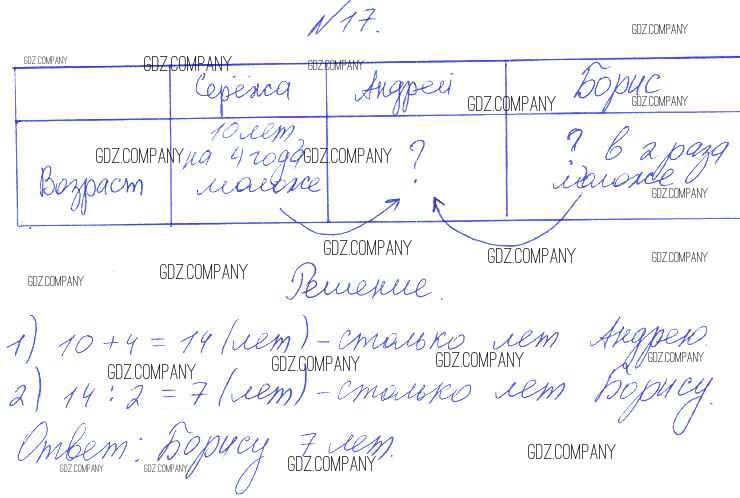 №17.
GDZ.COMPANY
GDZ.COMPANY GDZ.COMPANY GDZ.COMPANY
Серёжа Андрей Борис
GDZ.COMPANY GDZ.COMPANY
Возраст
10 лет,
на 4 года
моложе
?
? в 2 раза
моложе
GDZ.COMPANY GDZ.COMPANY
GDZ.COMPANY
GDZ.COMPANY GDZ.COMPANY GDZ.COMPANY
GDZ.COMPANY GDZ.COMPANY
Решение.
1) 10 + 4 = 14 (лет) – столько лет Андрею.
GDZ.COMPANY GDZ.COMPANY GDZ.COMPANY GDZ.COMPANY
2) 14 : 2 = 7 (лет) – столько лет Борису.
Ответ: Борису 7 лет.
GDZ.COMPANY GDZ.COMPANY GDZ.COMPANY GDZ.COMPANY